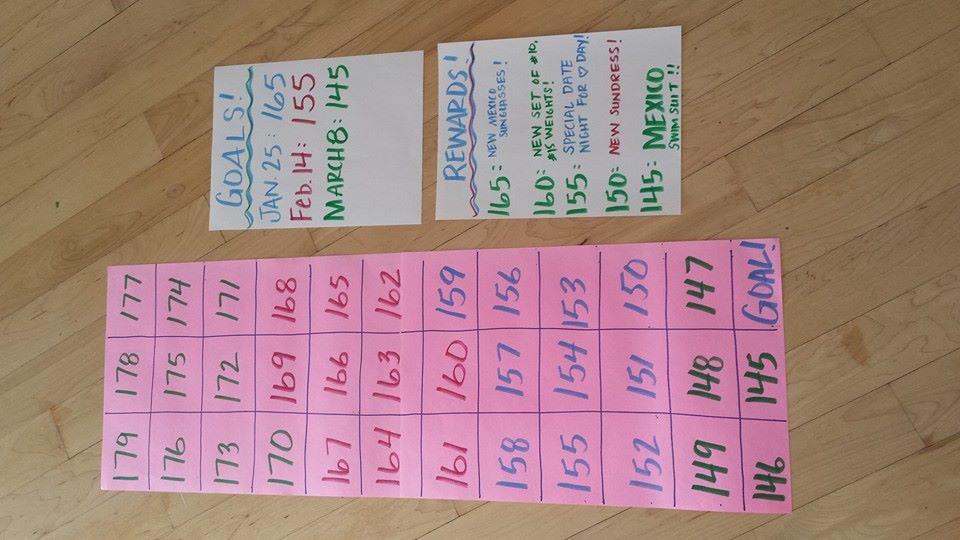 179 178 177
176 175 174
173 172 171
170 169 168
167 166 165
164 163 162
161 160 159
158 157 156
155 154 153
152 151 150
149 148 147
146 145 GOAL!
GOALS!
JAN 25: 165
Feb. 14: 155
MARCH 8: 145
REWARDS!
165: NEW MEXICO
SUNGLASSES!
160: NEW SET OF #10,
#15 WEIGHTS!
155: SPECIAL DATE
NIGHT FOR ♡ DAY!
150: NEW SUNDRESS!
145: MEXICO
SWIM SUIT!!